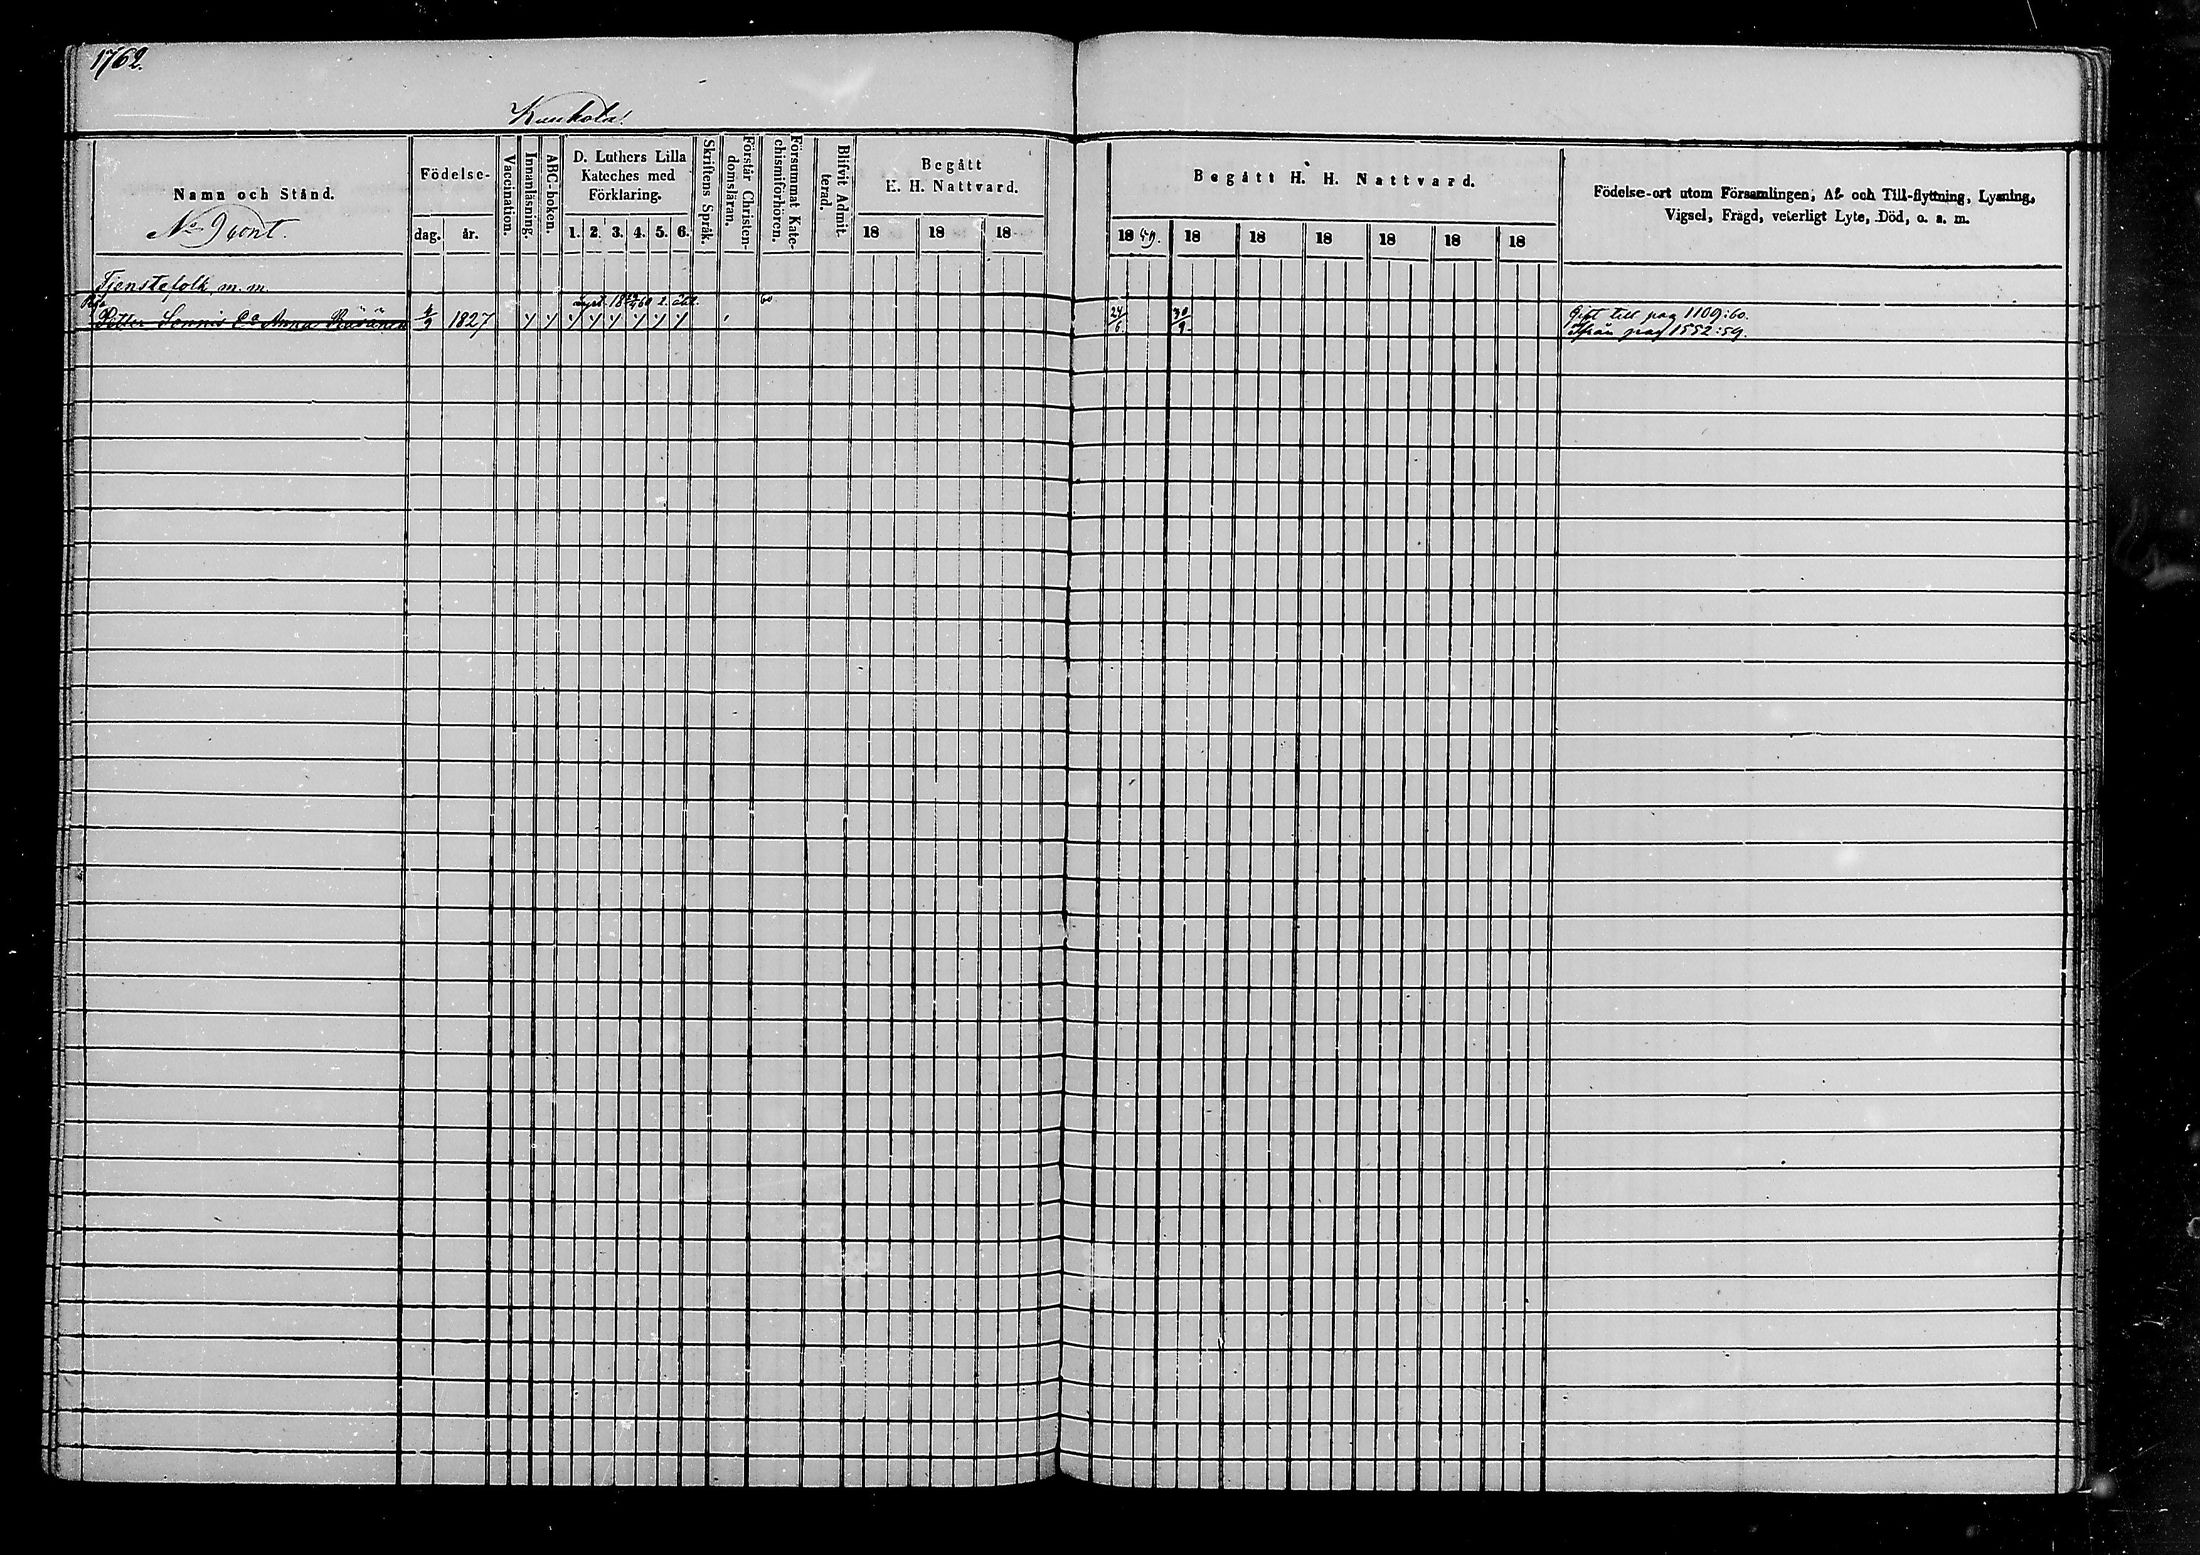 1762.
Kunkola!
Namn och Stånd.
No 9 cont.
Födelse-
dag. år.
Vaccination.
Innanläsning.
ABC-boken.
D. Luthers Lilla
Kateches med
Förklaring.
1. 2. 3. 4. 5. 6.
Skriftens Språk.
Förstår Christen-
domsläran.
Försummat Kate-
chismiförhören.
Blifvit Admit-
terad.
Begått
H. H. Nattvard.
18 18 18
Begått H. H. Nattvard.
18 59. 18 18 18 18 18 18
Födelse-ort utom Församlingen, Af- och Till-flyttning, Lysning,
Vigsel, Frägd, veterligt Lyte, Död, o. s. m.
Tjenstefolk, m. m.
60
Petter Sonnis Ee Anna Räsänen 4/9 1827
24/6 30/9
Gift till pag 1109:60.
Ifrån pag 1552:59.